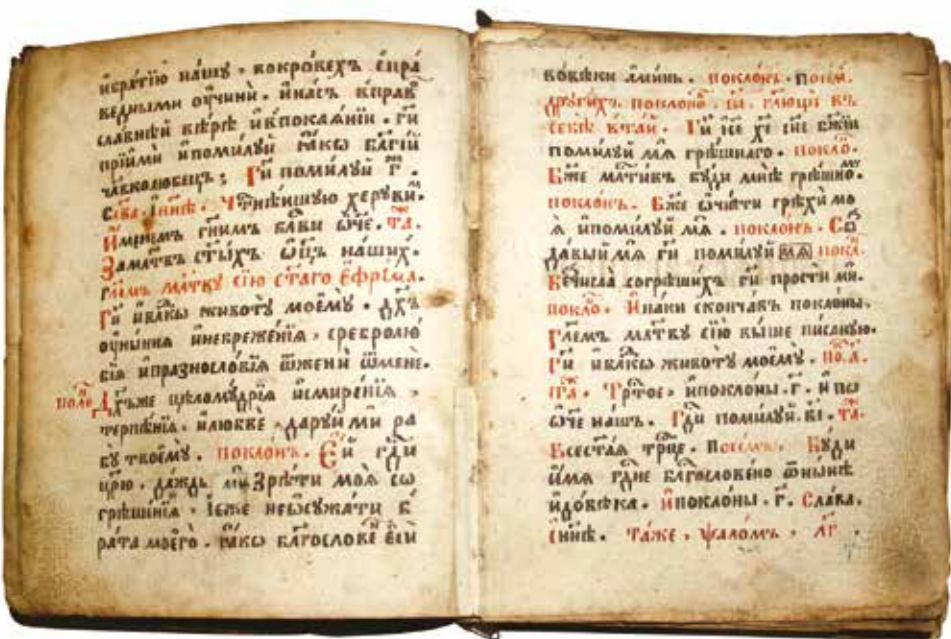 ибратїю нашу · вокровехъ спра
ведными оучини · инасъ вправ
славнѣй вѣрѣ ивпокаянїи · ги
прїими ипомилуй ꙗкѡ благїй
чл҃вколюбецъ ; Ги помилуй г҃ ·
Сла҃ва · инн҃ѣ · Чтнѣишую херуви ·
Именемъ гн҃имъ бл҃ви ѡ҃че · та ·
Замл҃твъ ст҃ыхъ ѡц҃ъ нашихъ ·
гл҃емъ мл҃тву сїю ст҃аго єфрема ·
Ги ивл҃кѡ животу моємꙋ · дх҃ъ
оуныния инебрежѐнїѧ · сребролю
бїѧ ипразнословїѧ ѿжени ѿмене ·
покло Дх҃ъже цѣломудрїѧ исмиренїѧ ·
терпѣнїѧ · илюбве · даруй ми ра
бу твоємꙋ · поклонъ · Єй гд҃и
цр҃ю · даждь ми Зрѣти моѧ со
грѣшенїѧ · іеже неѡсужати б
рата моего · ꙗкѡ благословенъ еси
вовѣки аминь · поклонъ · потом ·
другихъ поклоно · в҃і · глюще въ
себѣ втай · Ги іс҃е хе҃ сн҃е бж҃їи
помилуй мѧ грѣшнаго · покло ·
Бж҃е мл҃тивъ буди мнѣ грѣшно ·
поклонъ · Бж҃е ѡчисти грѣхи мо
ѧ ипомилуй мѧ · поклонъ · Со
давый мѧ ги помилуй мѧ покл ·
Бечисла согрѣшихъ ги прости ми ·
покло · Ипаки скончавъ поклоны ·
Гл҃емъ мл҃тву сїю выше писаную ·
Ги ивл҃кѡ животу моємꙋ · по ·
та · Тр҃тое · ипоклоны · г҃ · и по
ѡ҃че нашъ · Гд҃и помилуй · в҃і · та ·
Всест҃аѧ трц҃е · Посемъ · Буди
имѧ гд҃не благословено ѿнынѣ
идовѣка · ипоклоны · г҃ · Слава ·
инн҃ѣ · таже · ѱаломъ · л҃г ·